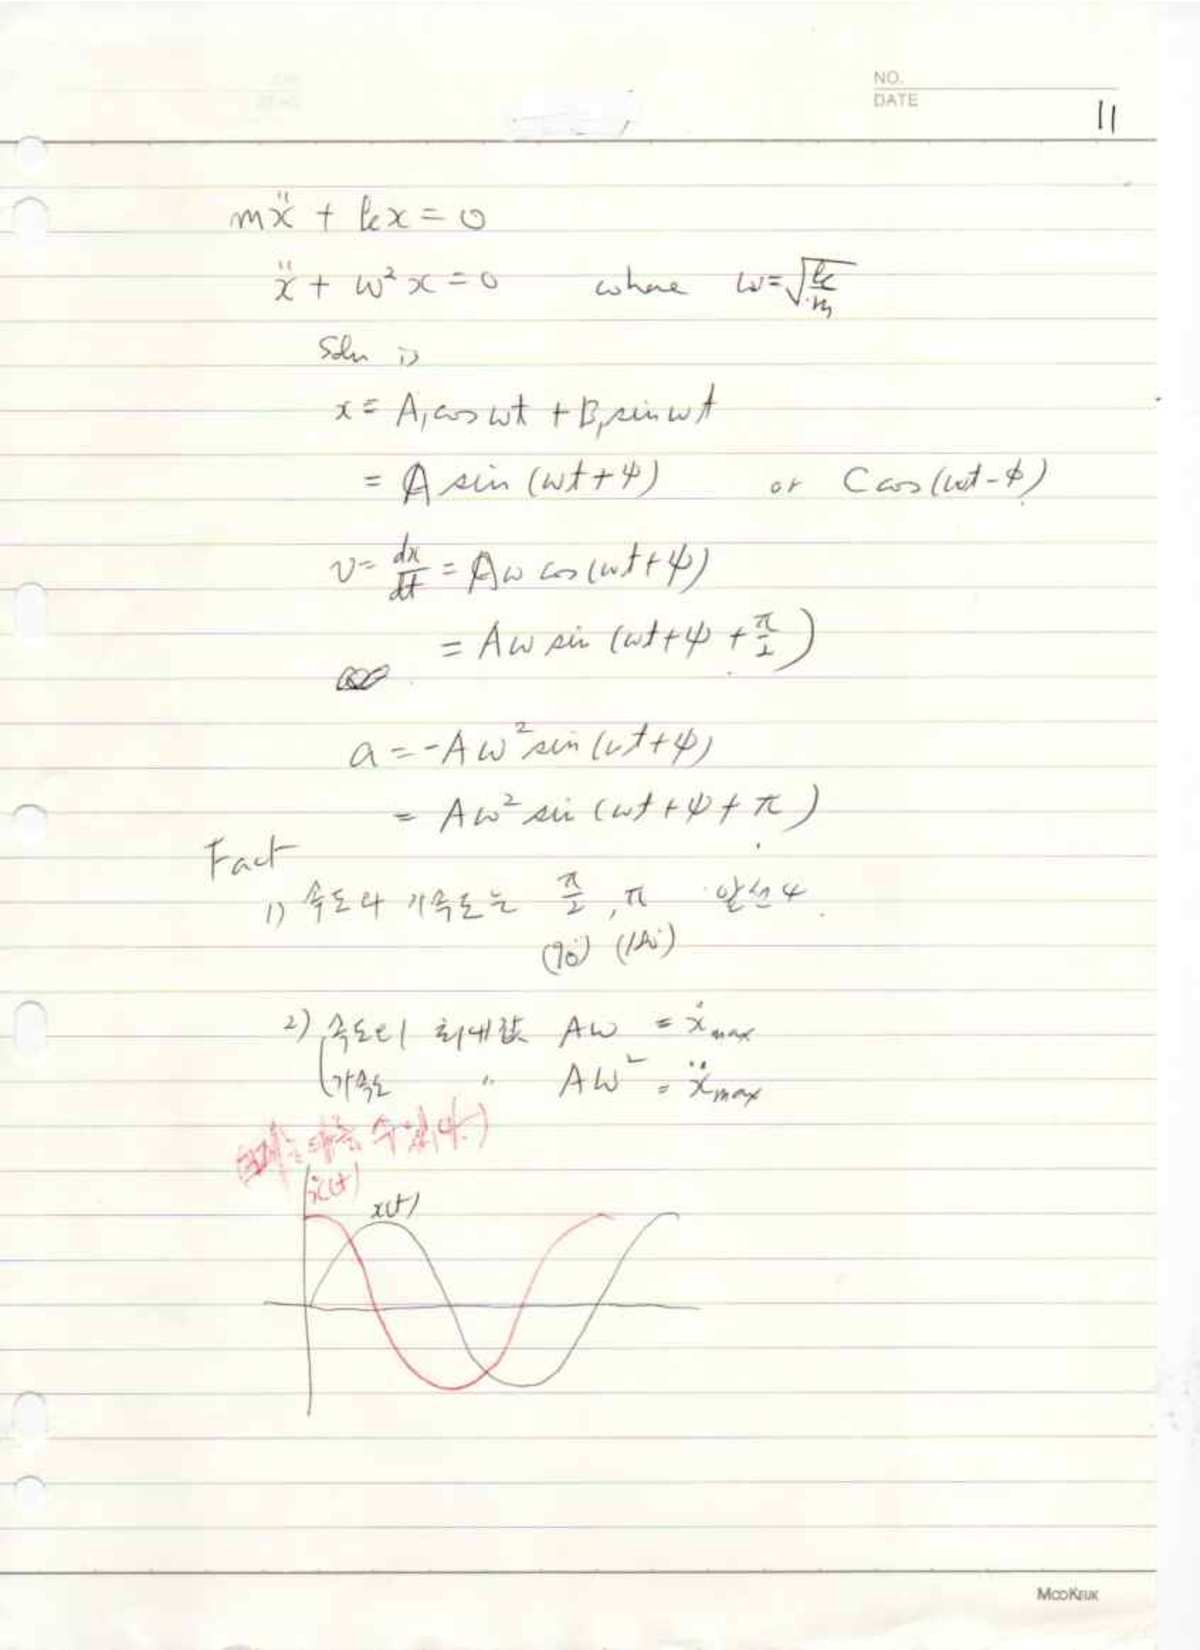 NO.
DATE
11
mẍ + kx = 0
ẍ + ω²x = 0 where ω = √(k/m)
Soln is
x = A₁cos ωt + B₁sin ωt
= A sin (ωt + ψ) or C cos (ωt - φ)
v = dx/dt = Aω cos (ωt + ψ)
= Aω sin (ωt + ψ + π/2)
a = -Aω² sin (ωt + ψ)
= Aω² sin (ωt + ψ + π)
Fact
1) 속도와 가속도는 π/2, π 앞선다.
(90°) (180°)
2) 속도의 최대값 Aω = ẋmax
가속도 " Aω² = ẍmax
수 있다.)
ẋ(t)
x(t)
MooKeuk